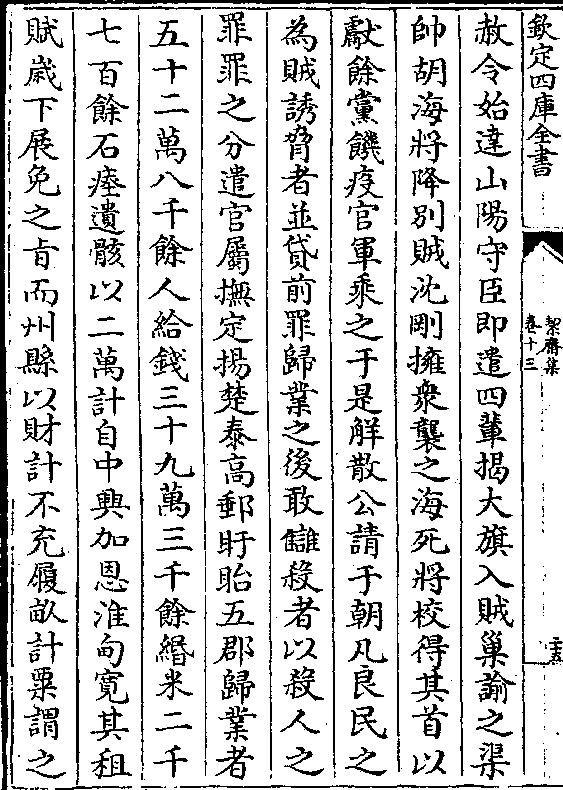 欽定四庫全書
絜齋集
卷十三
二五
赦令始達山陽守臣即遣四輩揭大旗入賊巢諭之渠
帥胡海將降別賊沈剛擁衆襲之海死將校得其首以
獻餘黨饑疫官軍乘之于是解散公請于朝凡良民之
為賊誘脅者並貸前罪歸業之後敢讎殺者以殺人之
罪罪之分遣官屬撫定揚楚泰高郵盱眙五郡歸業者
五十二萬八千餘人給錢三十九萬三千餘緡米二千
七百餘石瘞遺骸以二萬計自中興加恩淮甸寛其租
賦嵗下展免之旨而州縣以財計不充履畝計粟謂之